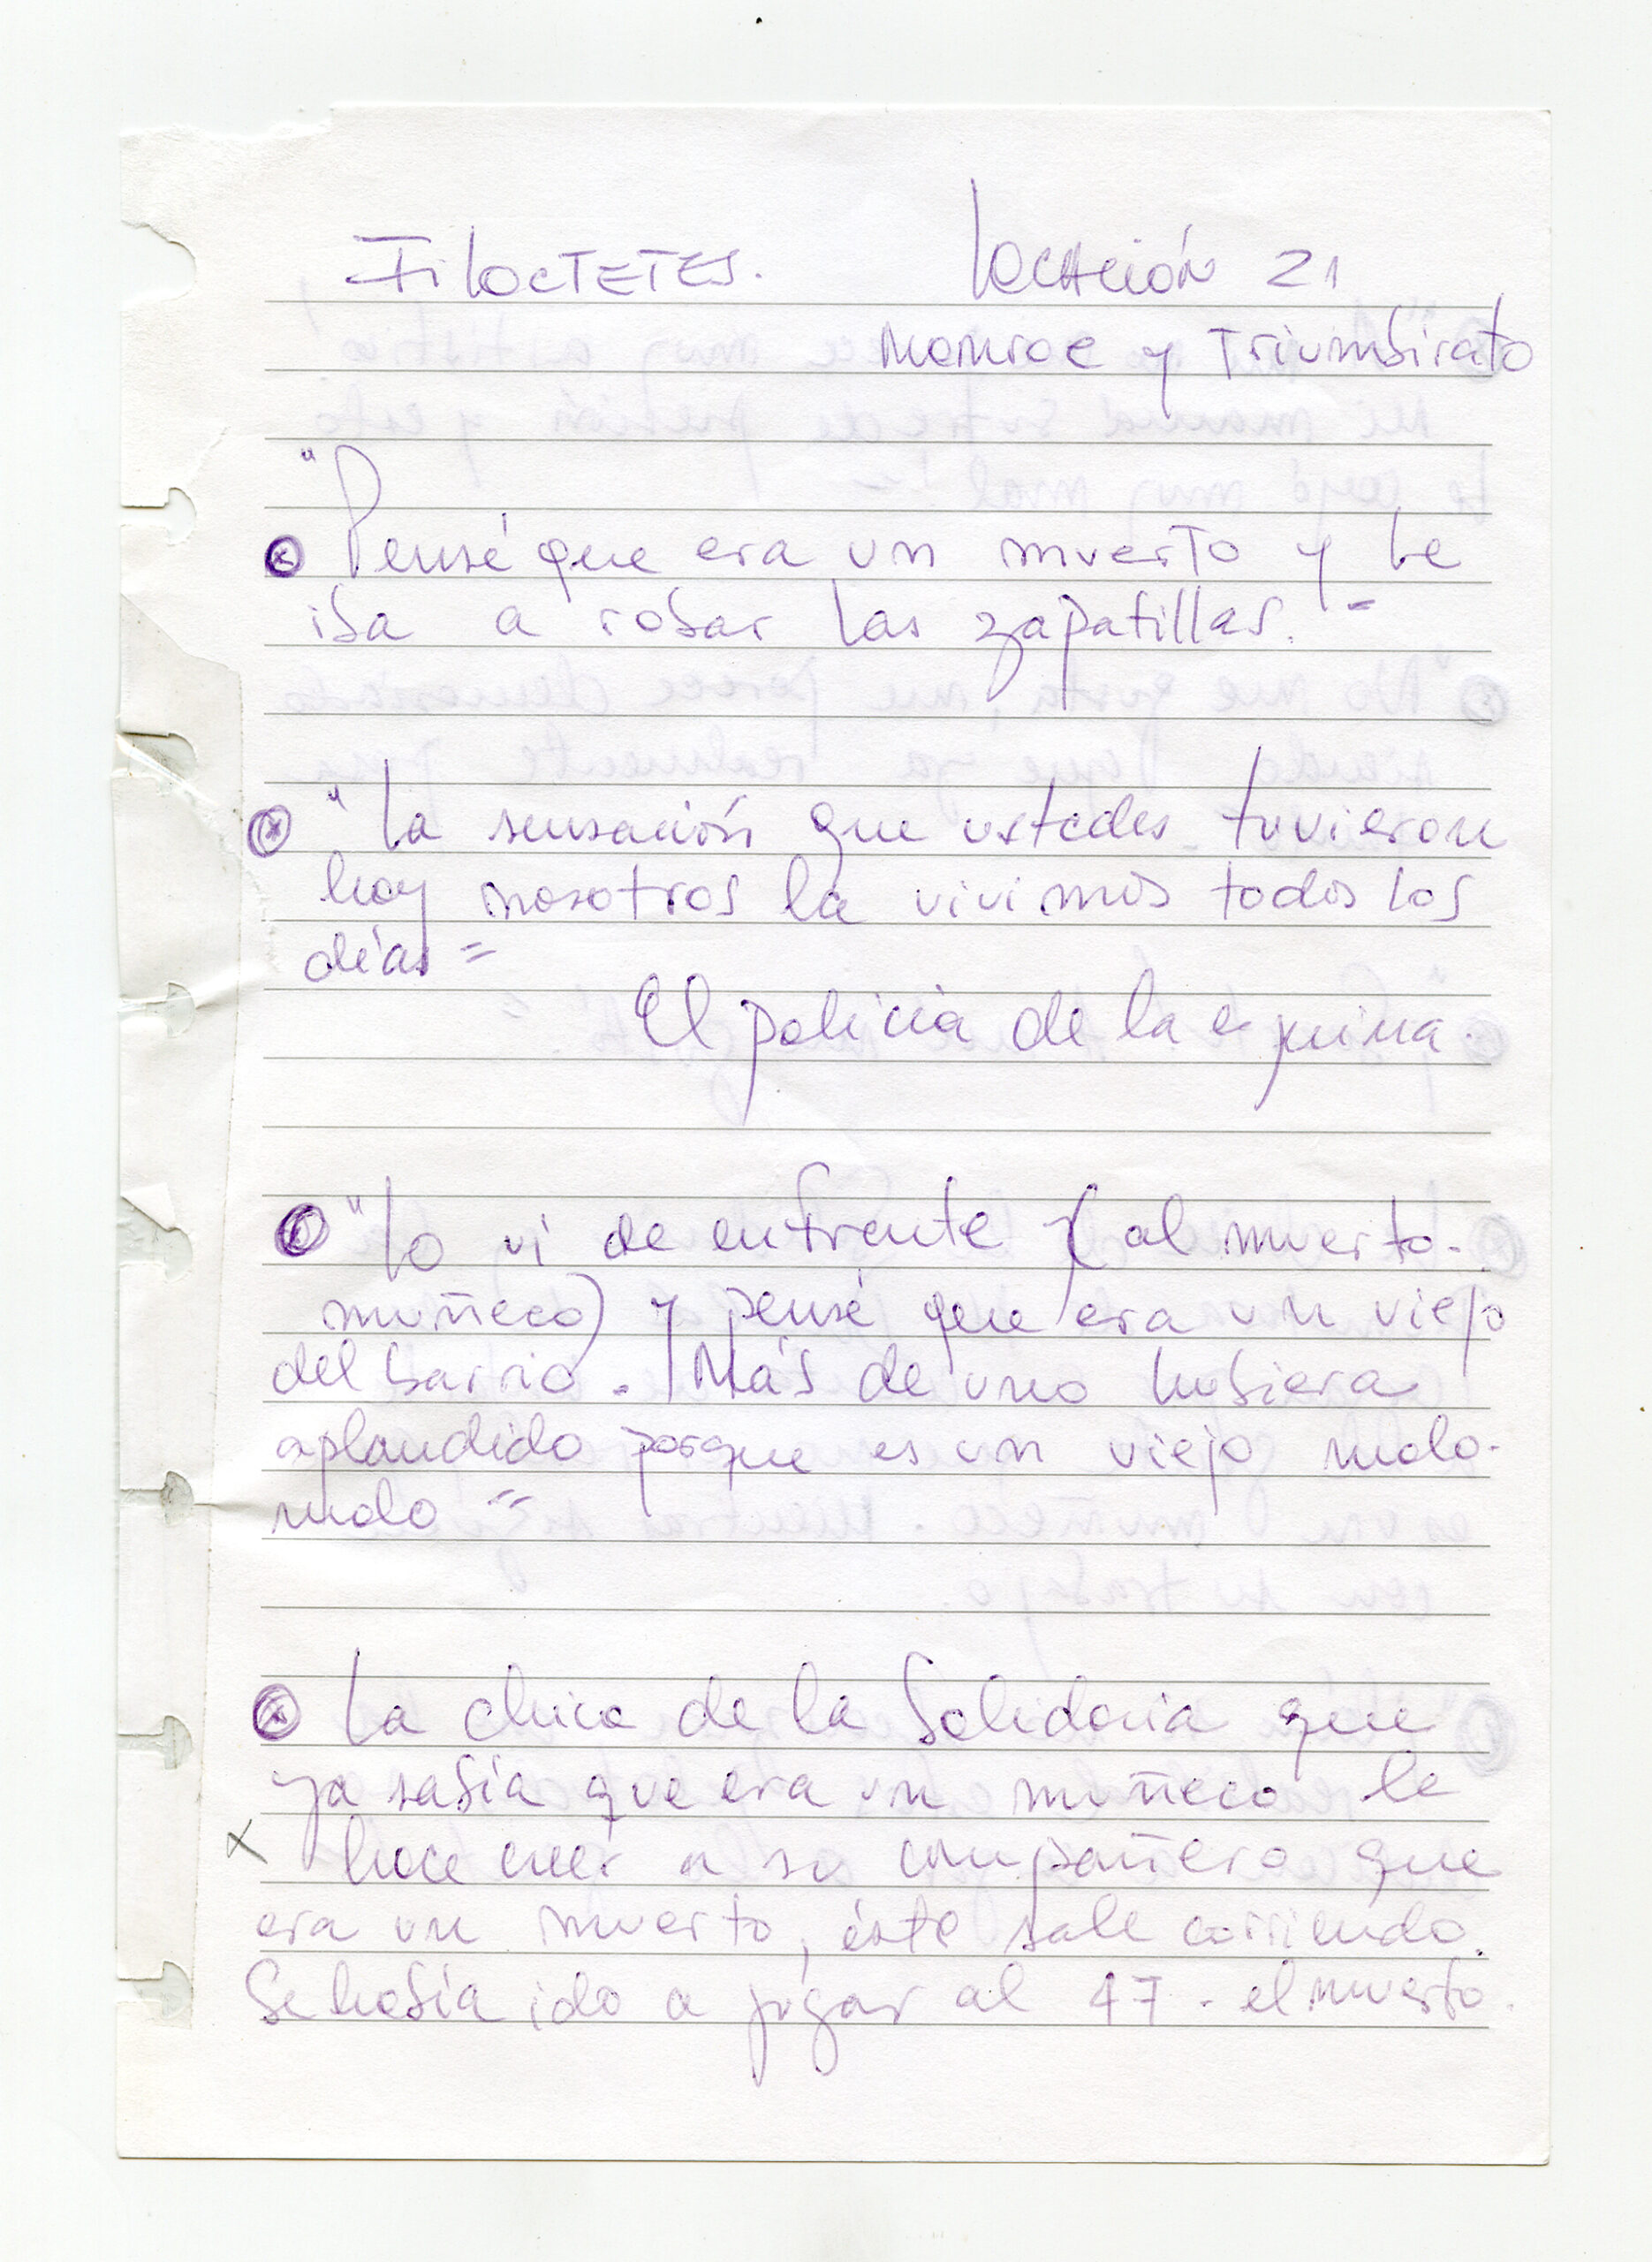 Filoctetes. Locación 21
Monroe y Triumbirato
"Pensé que era un muerto y le
iba a robar las zapatillas."
"La sensación que ustedes tuvieron
hoy nosotros la vivimos todos los
días"
El policia de la esquina.
"Lo vi de enfrente (al muerto-
muñeco) y pensé que era un viejo
del barrio. Más de uno hubiera
aplaudido porque es un viejo
La chica de la Solidaria que
ya sabía que era un muñeco le
x hace creer a su compañero que
era un muerto, éste sale corriendo.
Se había ido a jugar al 47 - el muerto.